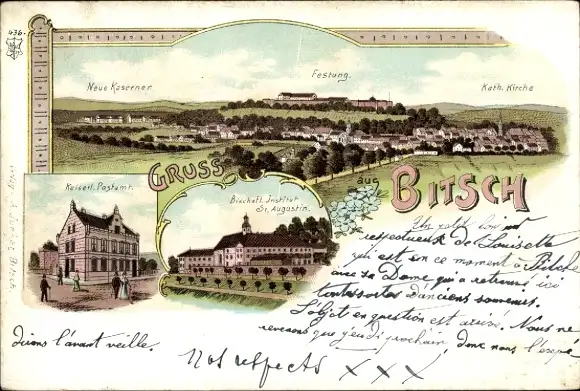 436.
Neue Kaserner
Festung.
Kath. Kirche
Kaiserl. Postamt.
Gruss
aus
Bitsch
Bischofl. Institut
St. Augustin.
Un petit bonjour
respectueux de Louisette
qui est en ce moment à Bitche
avec sa Dame qui a retrouvé ici
toutes sortes d'anciens souvenirs.
L'objet en question est arrivé. Nous ne
revenons que jeudi prochain, donc nous
dirons l'avant veille.
Nos respects XXX